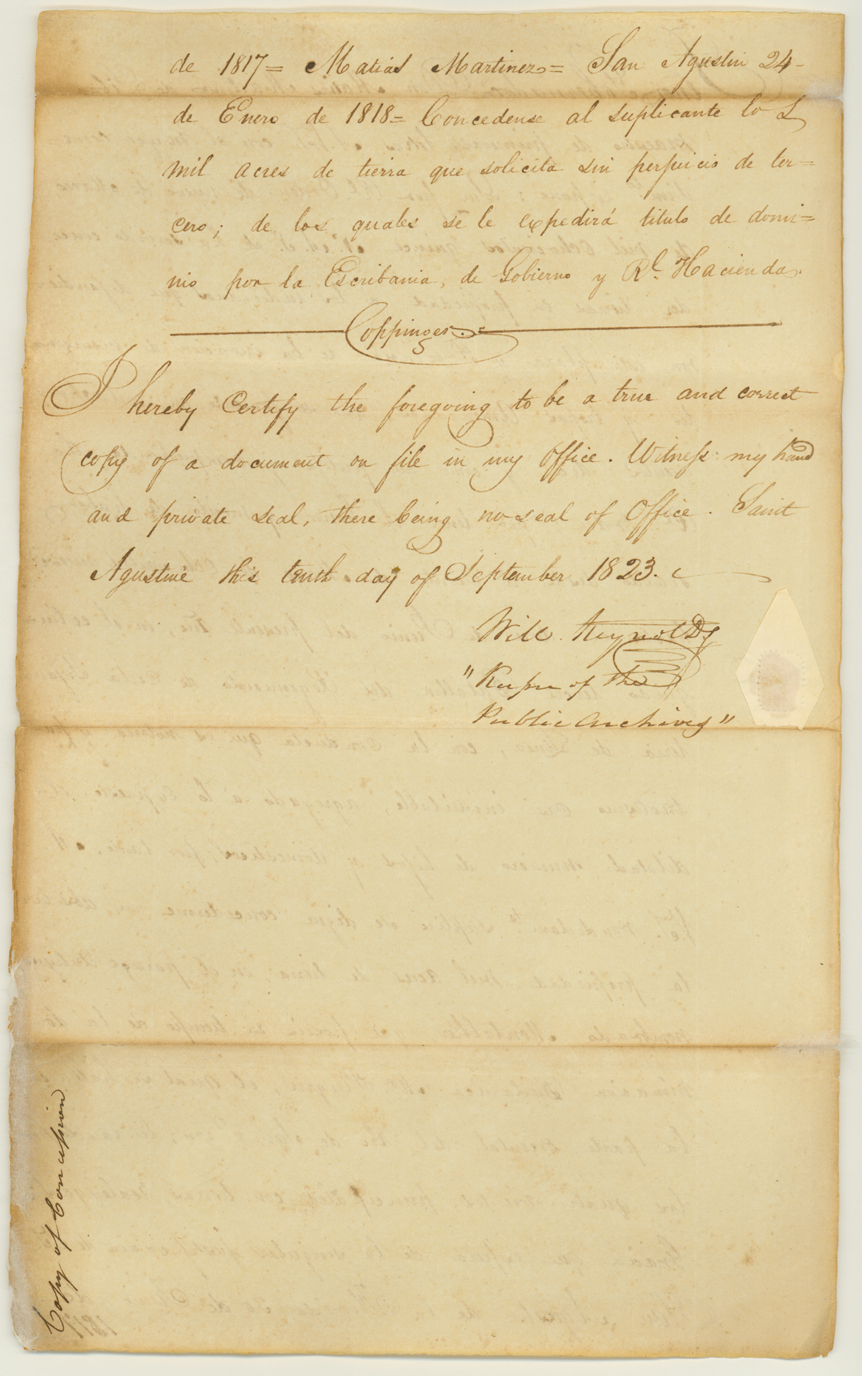 de 1817= Matias Martinez= San Agustin 24-
de Enero de 1818= Concedense al suplicante los
mil acres de tierra que solicita sin perjuicio de ter=
cero; de los quales se le expedirá titulo de domi=
nio por la Escribania, de Gobierno y Rl. Hacienda.
Coppinger.=
I hereby Certify the foregoing to be a true and correct
copy of a document on file in my Office. Witness my hand
and private seal, there being no seal of Office. Saint
Agustine this tenth day of September 1823.
Will. Reynolds
"Keeper of the
Public Archives"
Copy of Concession
1817